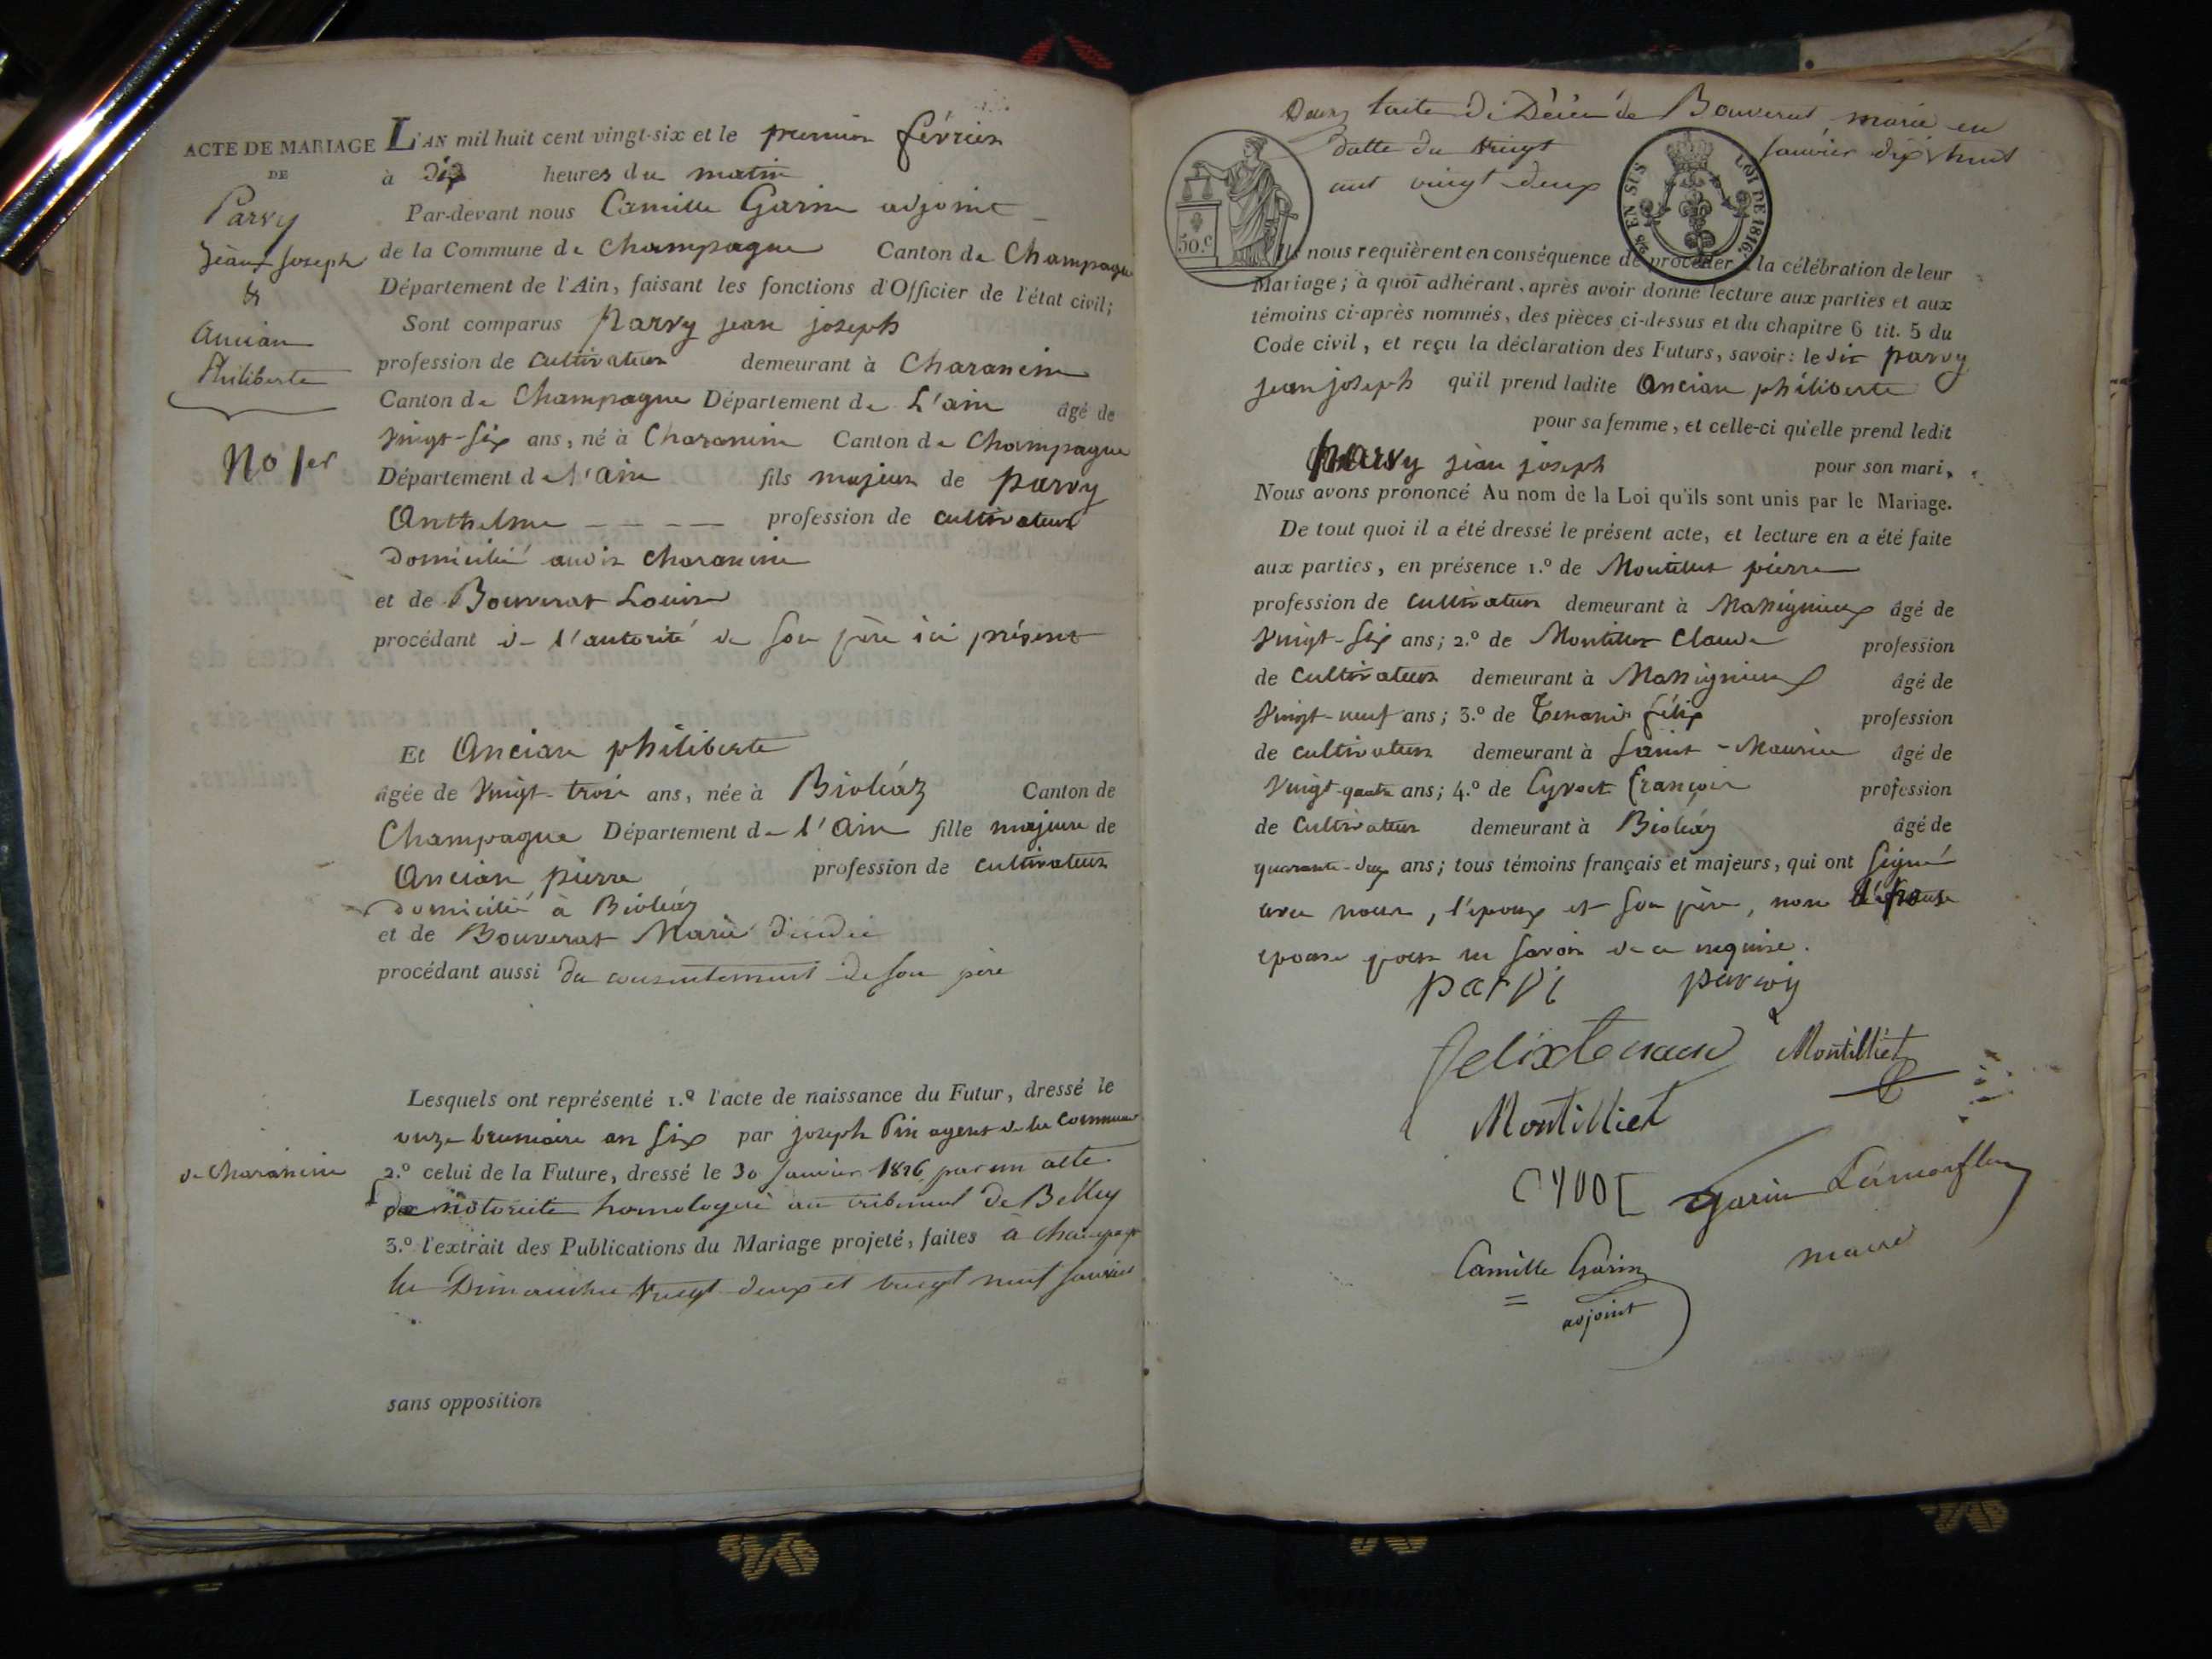 ACTE DE MARIAGE
DE
Parvy
Jean Joseph
&
Ancian
Philiberte
No 1er
L'AN mil huit cent vingt-six et le premier février
à dix heures du matin
Par-devant nous Camille Garin adjoint
de la Commune de Champagne Canton de Champagne
Département de l'Ain, faisant les fonctions d'Officier de l'état civil;
Sont comparus Parvy jean joseph
profession de cultivateur demeurant à Charancin
Canton de Champagne Département de L'ain âgé de
vingt-six ans, né à Charancin Canton de Champagne
Département de l'ain fils majeur de parvy
Anthelme profession de cultivateur
domicilié audit charancin
et de Bouverat Louise
procédant de l'autorité de son père ici présent
Et Ancian philiberte
âgée de vingt-trois ans, née à Bioléaz Canton de
Champagne Département de l'Ain fille majeure de
Ancian pierre profession de cultivateur
domicilié à Bioléaz
et de Bouverat Marie décédée
procédant aussi du consentement de son père
Lesquels ont représenté 1.º l'acte de naissance du Futur, dressé le
onze brumaire an six par joseph Pin agent de la commune
de Charancin
2.º celui de la Future, dressé le 30 janvier 1826 par un acte
de notoriété homologué au tribunal de Belley
3.º l'extrait des Publications du Mariage projeté, faites à champagne
les Dimanches vingt-deux et vingt neuf janvier
sans opposition
de Décès de Bouverat marie en
datte du vingt janvier dix huit
cent vingt-deux
50.c
EN SUS
LOI DE 1816.
Ils nous requièrent en conséquence de procéder à la célébration de leur
Mariage; à quoi adhérant, après avoir donné lecture aux parties et aux
témoins ci-après nommés, des pièces ci-dessus et du chapitre 6 tit. 5 du
Code civil, et reçu la déclaration des Futurs, savoir: le dit parvy
jean joseph qu'il prend ladite Anciane philiberte
pour sa femme, et celle-ci qu'elle prend ledit
parvy jean joseph pour son mari,
Nous avons prononcé Au nom de la Loi qu'ils sont unis par le Mariage.
De tout quoi il a été dressé le présent acte, et lecture en a été faite
aux parties, en présence 1.º de Montillet pierre
profession de cultivateur demeurant à Massignieux âgé de
vingt-six ans; 2.º de Montillet Claude profession
de cultivateur demeurant à Massignieux âgé de
vingt-neuf ans; 3.º de Tenand félix profession
de cultivateur demeurant à saint-Maurice âgé de
vingt-quatre ans; 4.º de Cyvoct françois profession
de cultivateur demeurant à Bioléaz âgé de
quarante-deux ans; tous témoins français et majeurs, qui ont signé
avec nous, l'époux et son père, non l'épouse
epouse pour ne savoir de ce requise.
parvi parvoy
felix tenand Montilliet
Montilliet
CYVOCT Garin
Camille Garin maire
adjoint